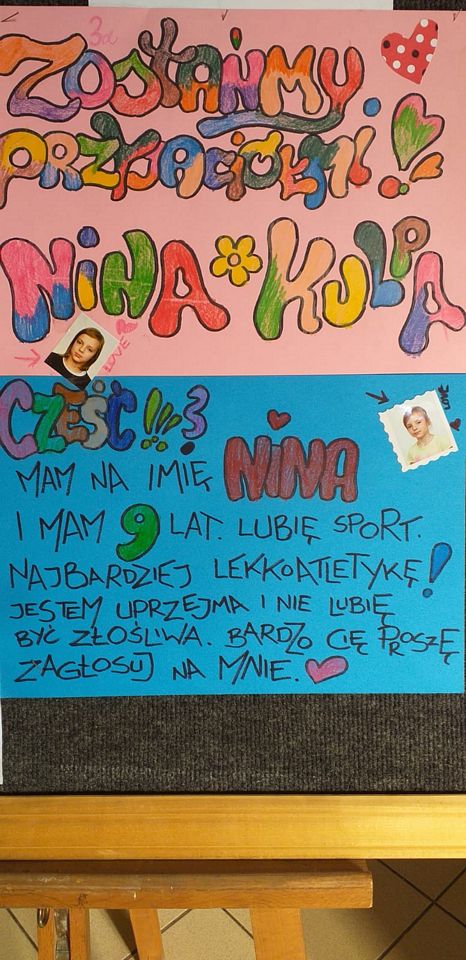 3a
ZOSTAŃMY
PRZYJACIÓŁMI!
NINA KULPA
LOVE
CZEŚĆ!!!
LOVE
MAM NA IMIĘ NINA
I MAM 9 LAT. LUBIĘ SPORT.
NAJBARDZIEJ LEKKOATLETYKĘ!
JESTEM UPRZEJMA I NIE LUBIĘ
BYĆ ZŁOŚLIWA. BARDZO CIĘ PROSZĘ
ZAGŁOSUJ NA MNIE.